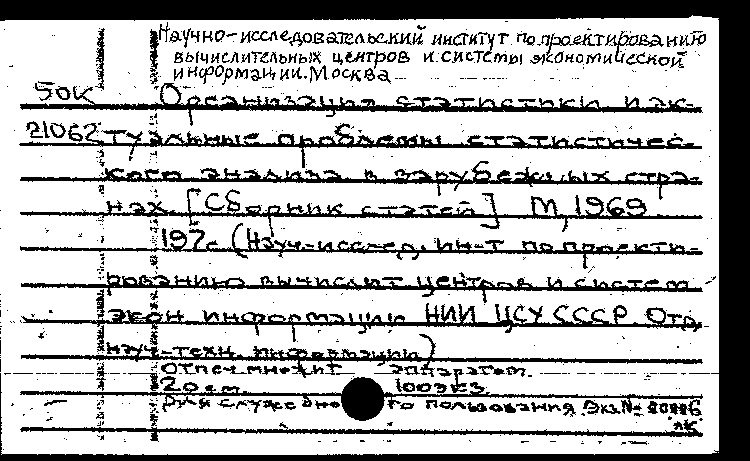 Научно-исследовательский институт по проектированию
вычислительных центров и системы экономической
информации. Москва
50К Организация статистики и ак-
21062 туальные проблемы статистичес-
кого анализа в зарубежных стра-
нах. [Сборник статей] М, 1969
197с (Науч-исслед. ин-т по проекти-
рованию вычислит центров и систем
экон информации НИИ ЦСУ СССР Отд
науч-техн. информации)
Отпеч. множит аппаратом.
20см. 100экз
Для служебно го пользования Экз№
лк